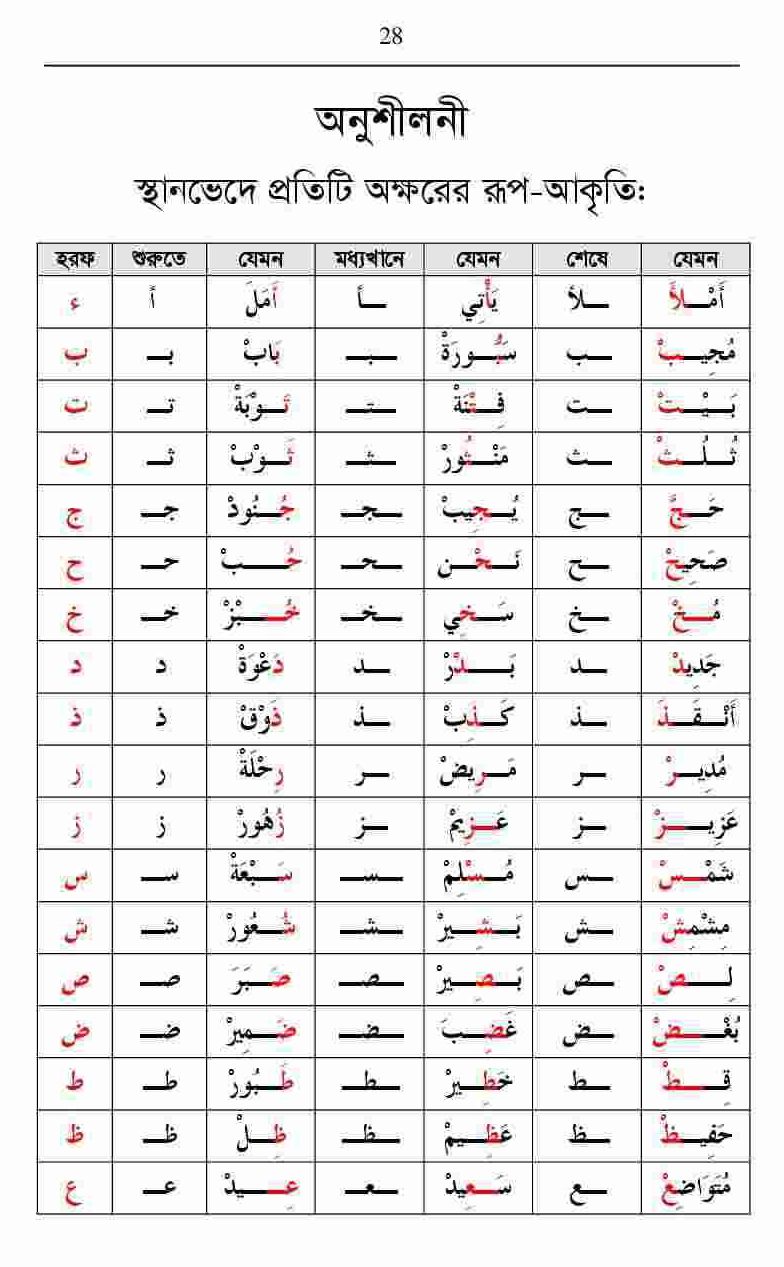 28
অনুশীলনী
স্থানভেদে প্রতিটি অক্ষরের রূপ-আকৃতি:
হরফ শুরুতে যেমন মধ্যখানে যেমন শেষে যেমন
ء أ أَمَلَ ـأ يَأْتِي ـلأ أَمْـلَأَ
ب بـ بَابْ ـبـ سَبُّـورَةْ ـب مُجِيـبْ
ت تـ تَـوْبَةْ ـتـ فِـتْنَةْ ـت بَـيْـتْ
ث ثـ ثَـوْبْ ـثـ مَنْـثُورْ ـث ثُـلُـثْ
ج جـ جُـنُودْ ـجـ يُـجِيبْ ـج حَـجَّ
ح حـ حُـبْ ـحـ نَـحْـن ـح صَحِيـحْ
خ خـ خُـبْزْ ـخـ سَـخِي ـخ مُـخْ
د د دَعْوَةْ ـد بَـدْرْ ـد جَدِيدْ
ذ ذ ذَوْقْ ـذ كَـذِبْ ـذ أَنْـقَـذَ
ر ر رِحْلَةْ ـر مَـرِيضْ ـر مُدِيـرْ
ز ز زُهُورْ ـز عَـزِيمْ ـز عَزِيـزْ
س سـ سَـبْعَةْ ـسـ مُـسْلِمْ ـس شَمْـسْ
ش شـ شُـعُورْ ـشـ بَـشِـيرْ ـش مِشْمِشْ
ص صـ صَـبَرَ ـصـ بَـصِـيرْ ـص لِـصْ
ض ضـ ضَـمِيرْ ـضـ غَضِـبَ ـض بُغْـضْ
ط طـ طَـبُورْ ـطـ خَطِـيرْ ـط قِـطْ
ظ ظـ ظِـلْ ـظـ عَظِـيمْ ـظ حَفِيـظْ
ع عـ عِـيدْ ـعـ سَـعِيدْ ـع مُتَوَاضِعْ